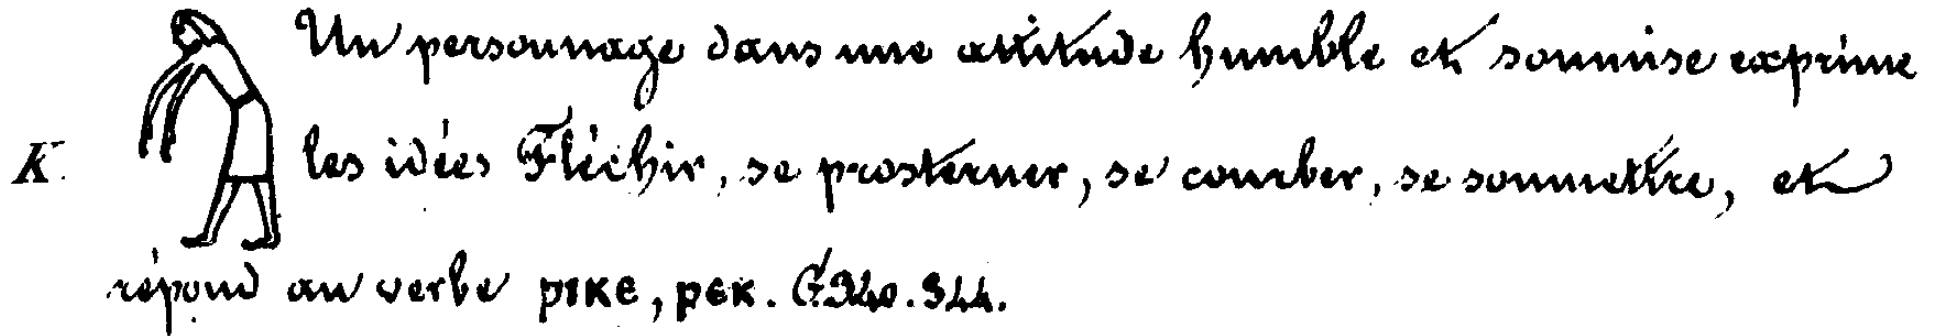 Un personnage dans une attitude humble et soumise exprime
K. les idées Fléchir, se prosterner, se courber, se soumettre, et
répond au verbe ⲣⲓⲕⲉ, ⲣⲉⲕ. G. 340. 344.